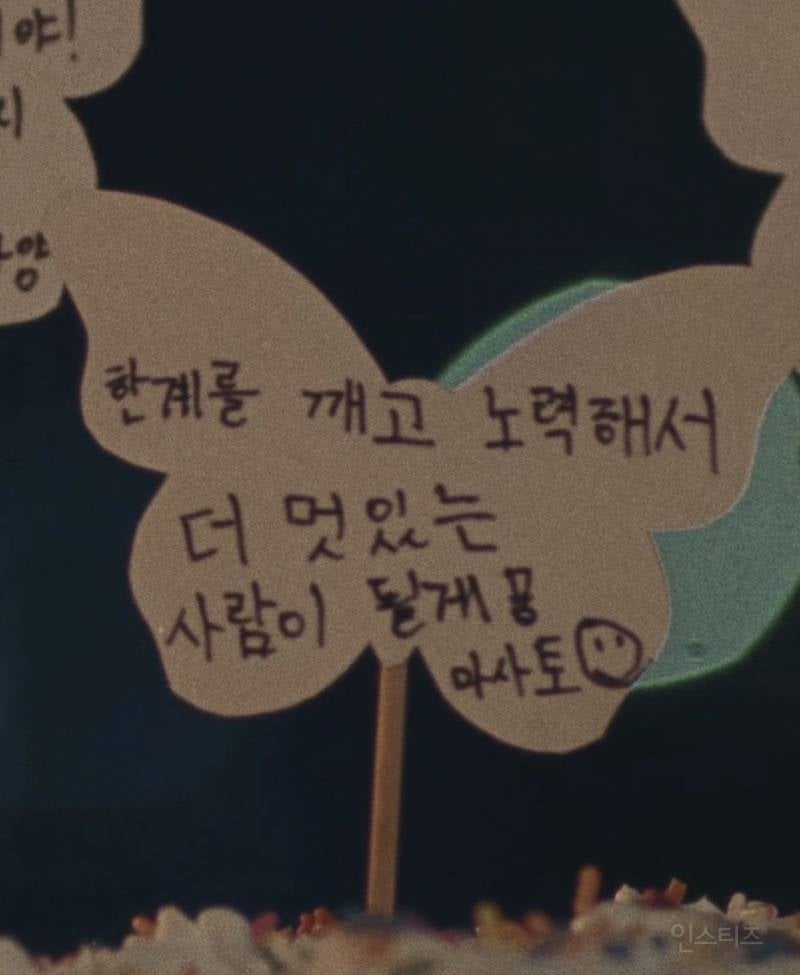 야!
한계를 깨고 노력해서
더 멋있는
사람이 될게용
마사토
인스티즈